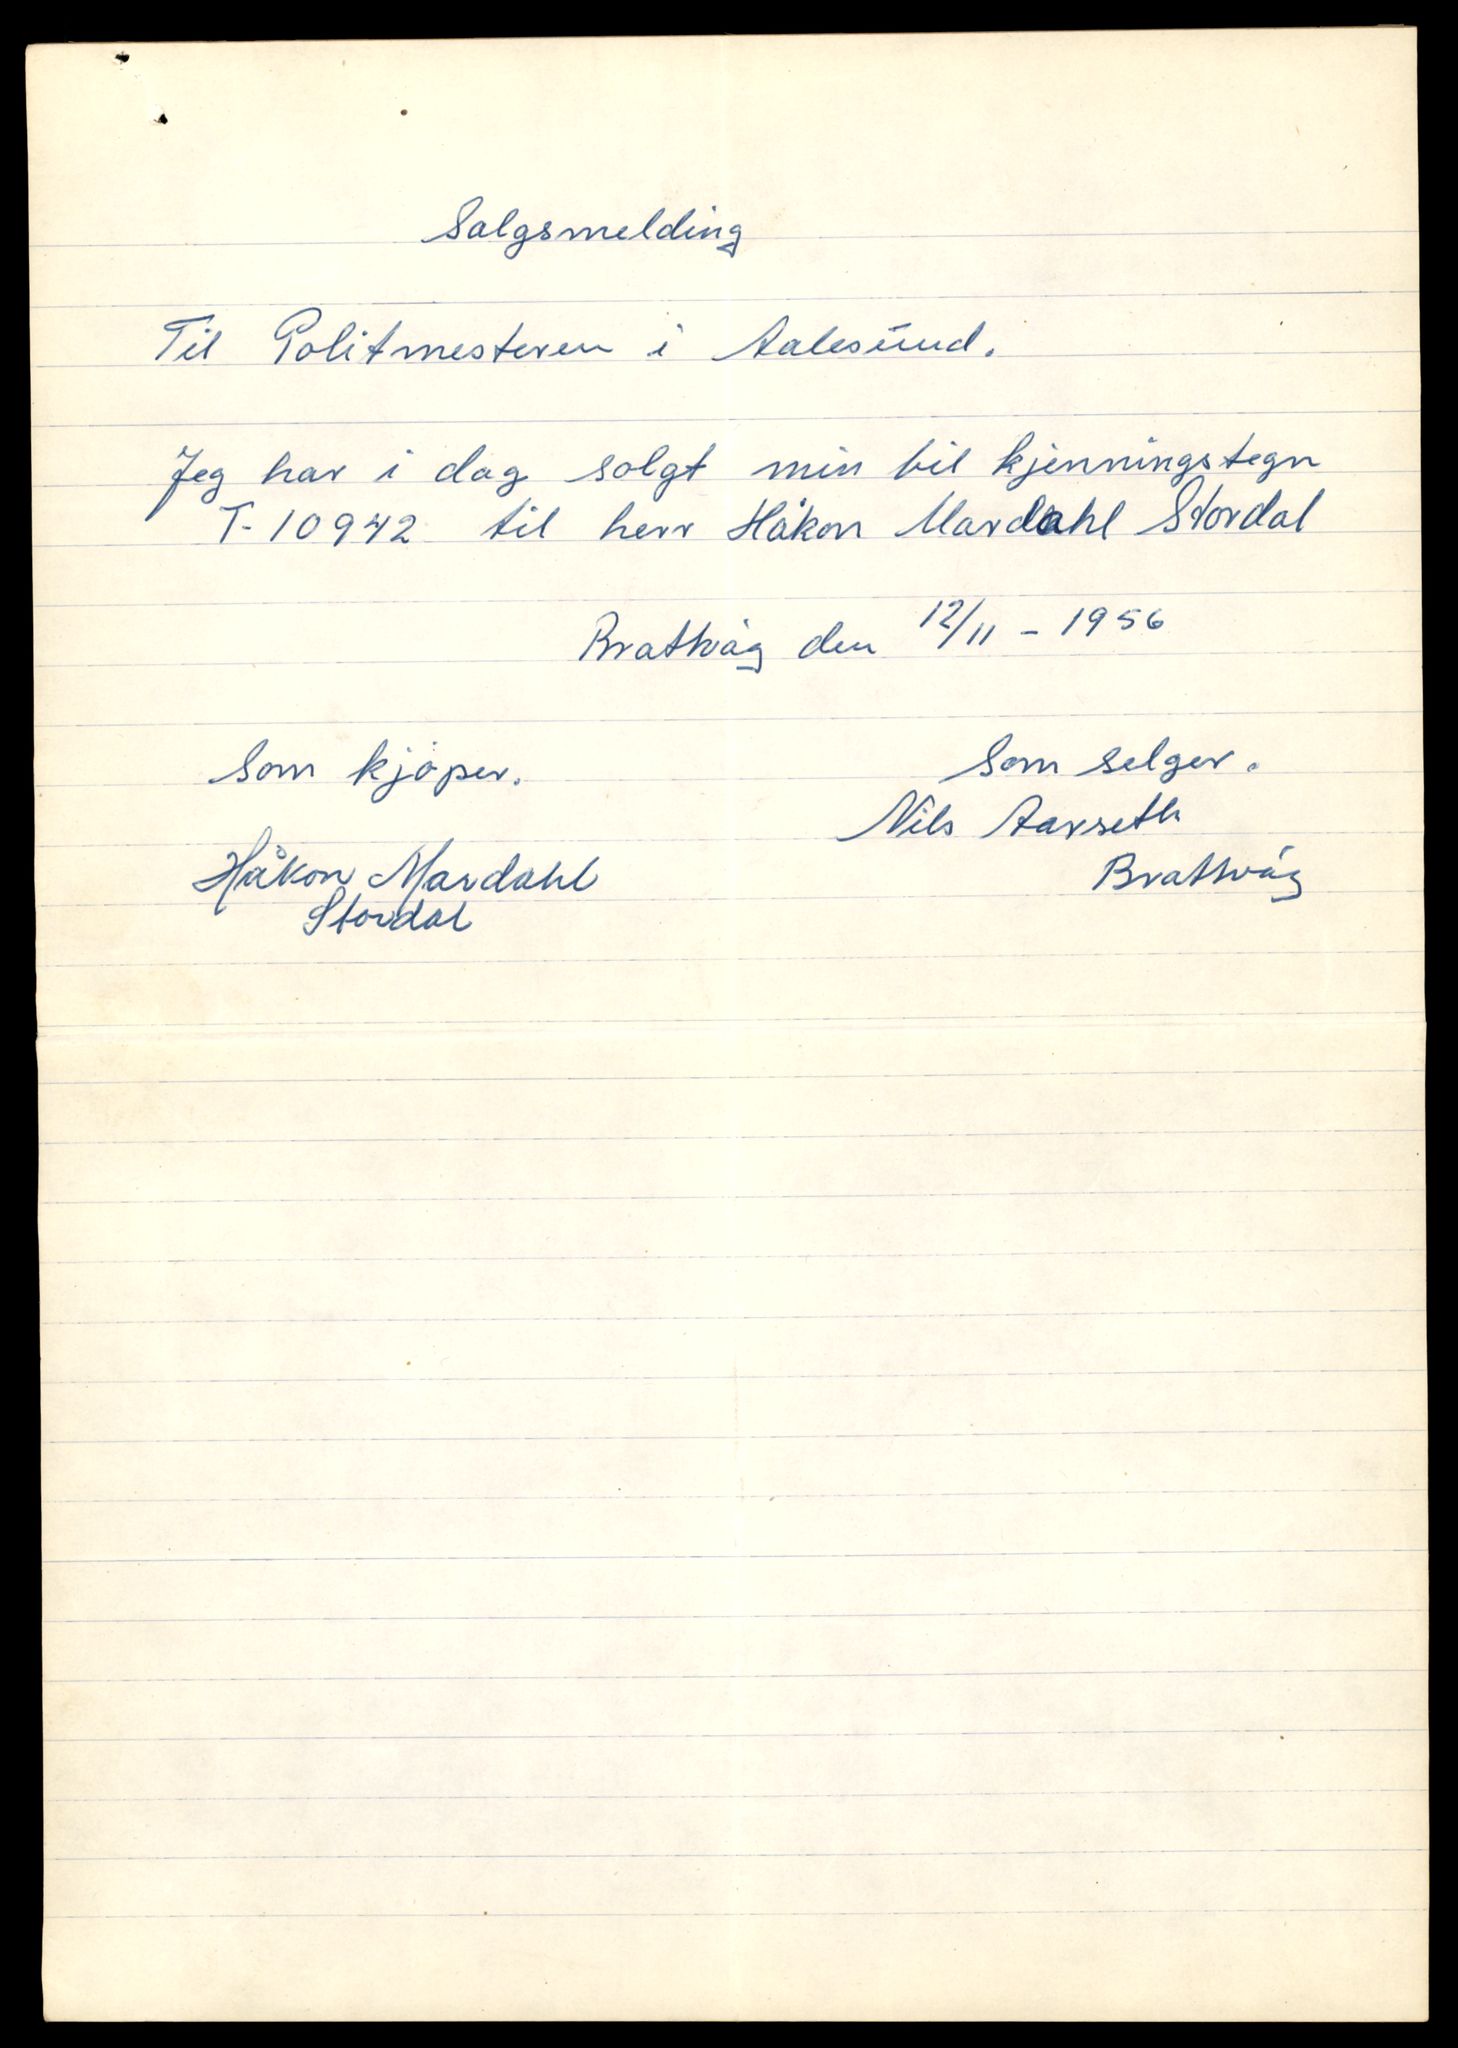 Salgsmelding
Til Politmesteren i Aalesund.
Jeg har i dag solgt min bil kjenningstegn
T-10942 til herr Håkon Mardahl Stordal
Brattvåg den 12/11 - 1956
Som kjøper.
Som selger.
Nils Aarseth
Håkon Mardahl
Brattvåg
Stordal